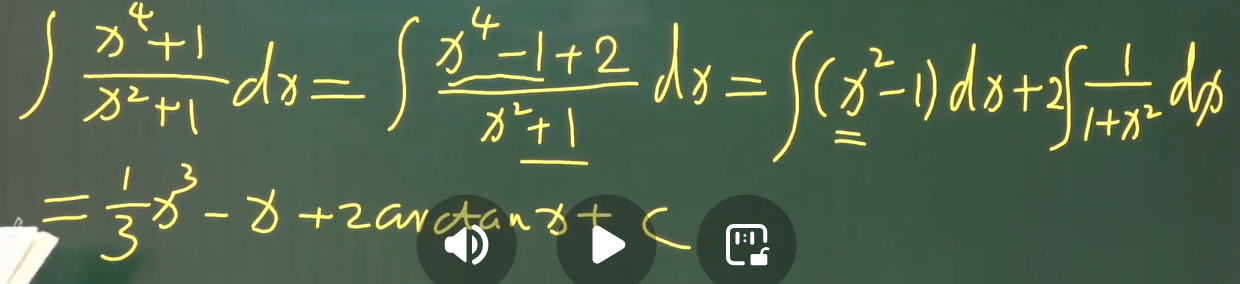 ∫ (x⁴+1)/(x²+1) dx = ∫ (x⁴-1+2)/(x²+1) dx = ∫(x²-1)dx + 2∫ 1/(1+x²) dx
= 1/3 x³ - x + 2arctanx + C
1:1